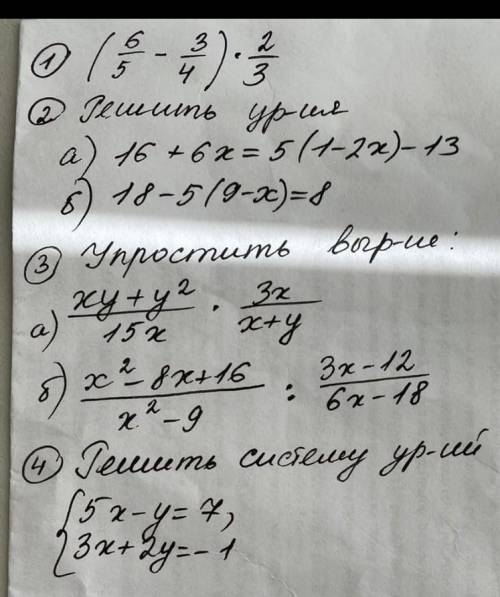 ① (6/5 - 3/4) · 2/3
② Решить ур-ия
а) 16 + 6x = 5(1-2x)-13
б) 18-5(9-x)=8
③ Упростить выр-ие:
а) (xy+y²)/(15x) · (3x)/(x+y)
б) (x²-8x+16)/(x²-9) : (3x-12)/(6x-18)
④ Решить систему ур-ий
{5x-y=7,
3x+2y=-1